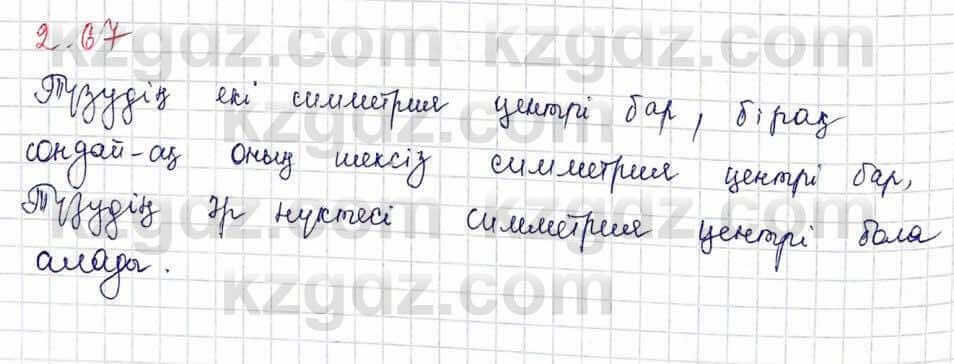 2.67
kzgdz.com kzgdz.com
Түзудің екі симметрия центрі бар, бірақ
kzgdz.com kzgdz.com
сондай-ақ оның шексіз симметрия центрі бар,
Түзудің әр нүктесі симметрия центрі бола
kzgdz.com kzgdz.com
алады.
kzgdz.com kzgdz.com